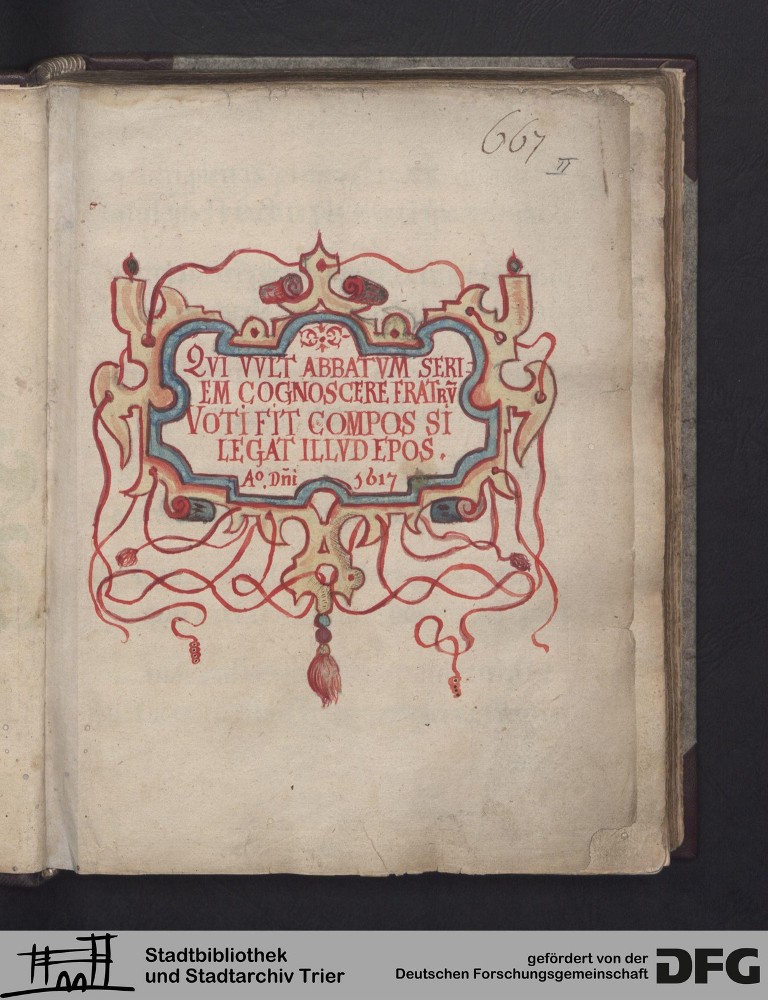 667
II
QVI VVLT ABBATVM SERI=
EM COGNOSCERE FRATRV̄
VOTI FIT COMPOS SI
LEGAT ILLVD EPOS.
Aº. Dñi 1617
Stadtbibliothek
und Stadtarchiv Trier
gefördert von der
Deutschen Forschungsgemeinschaft
DFG